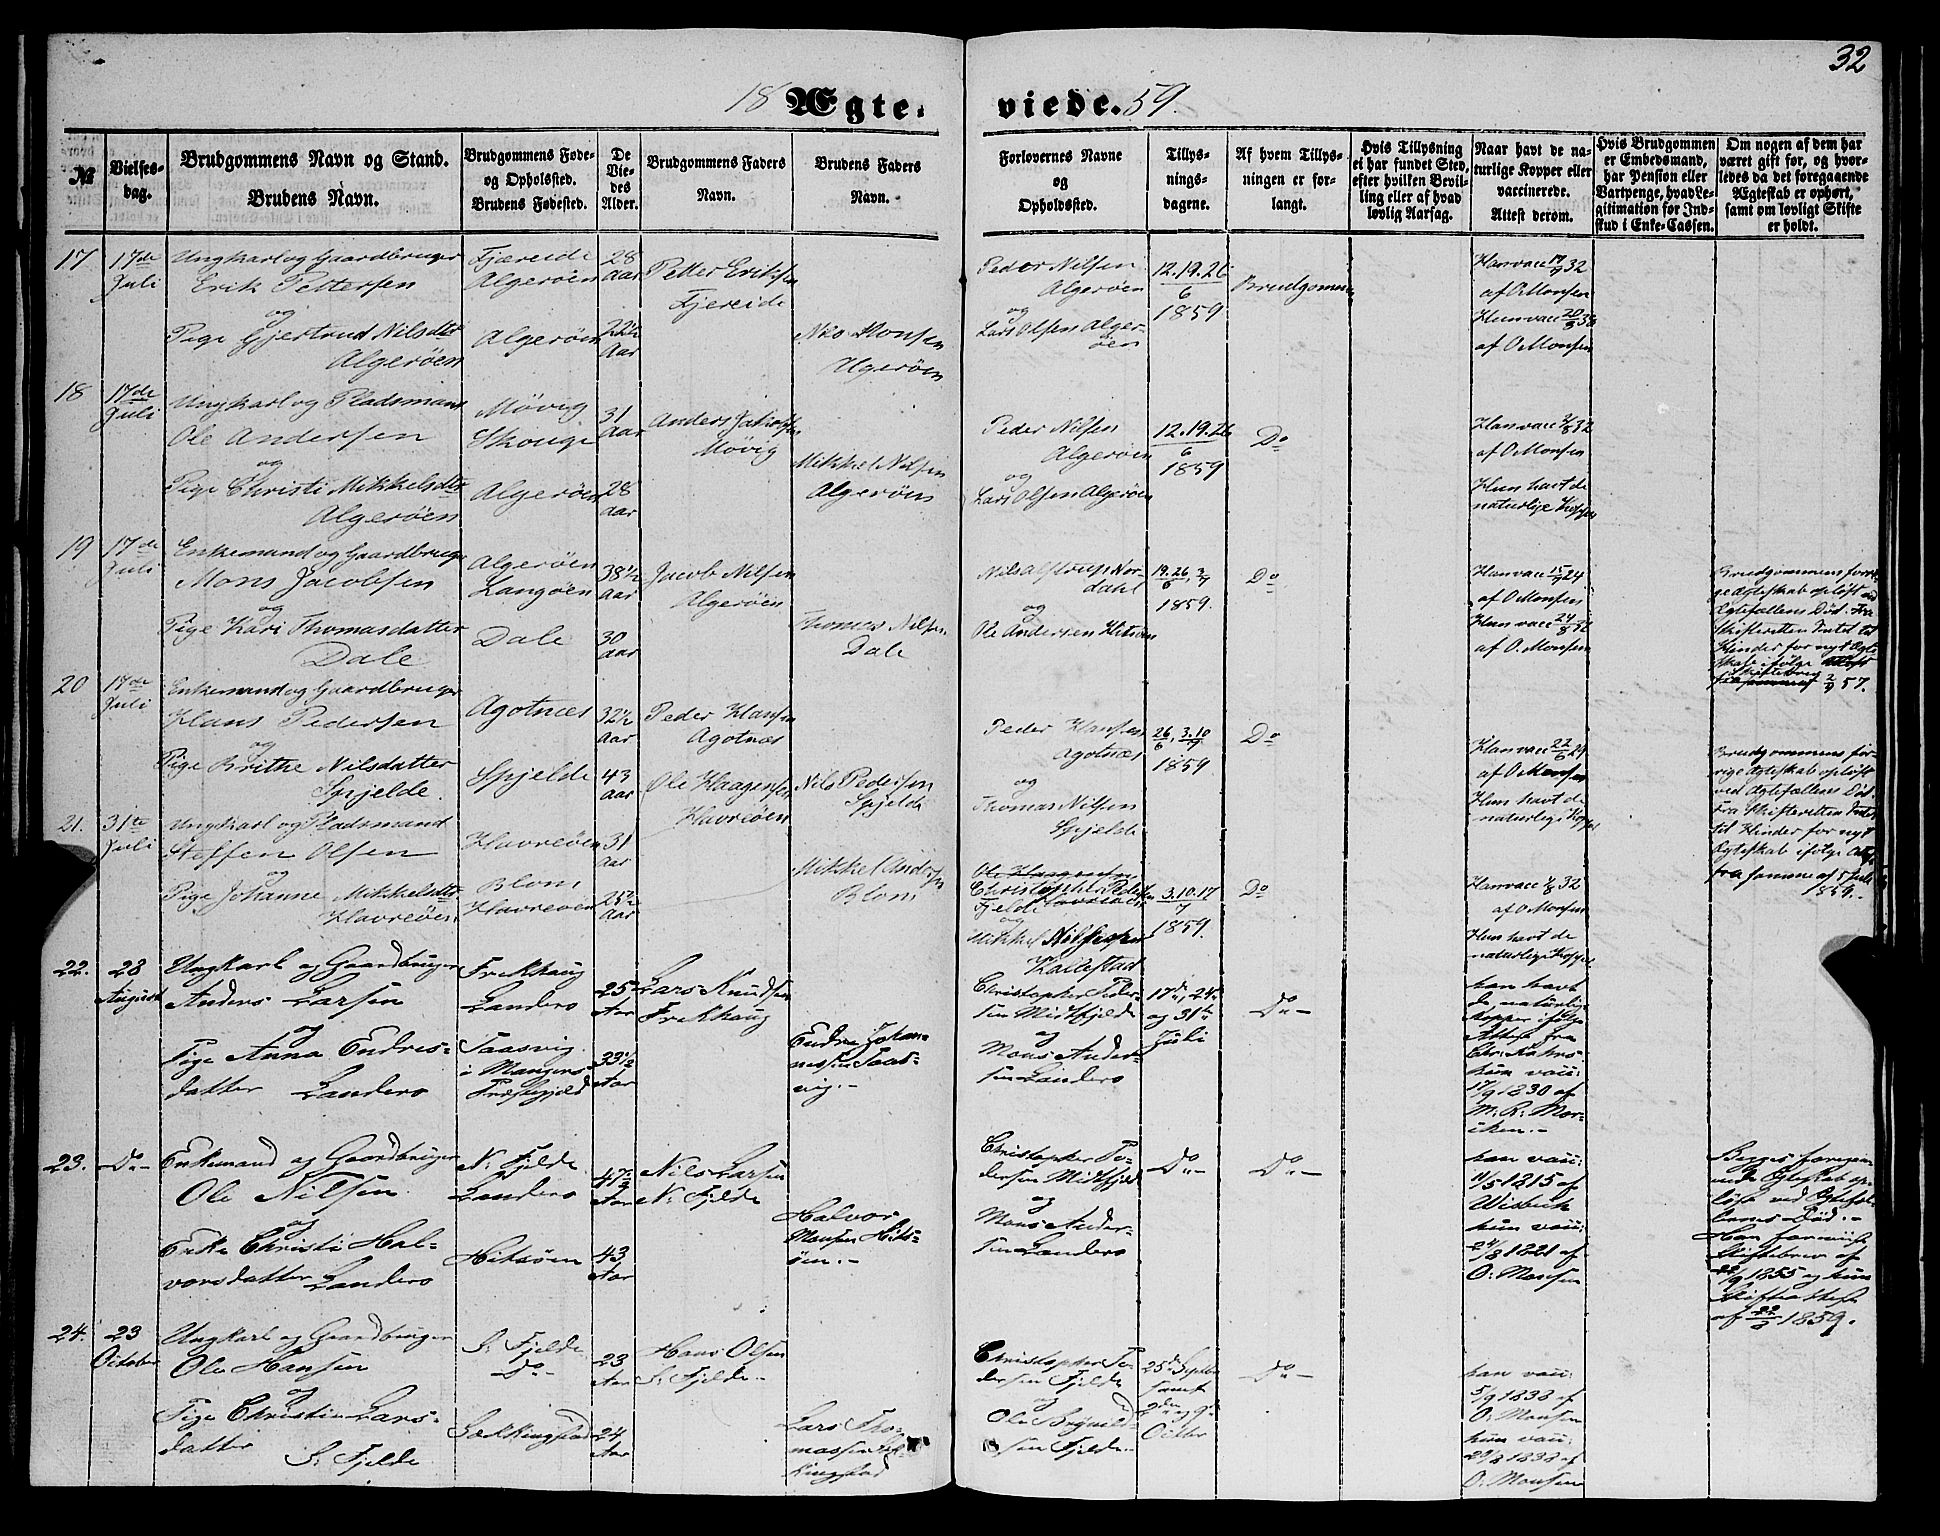 32
18 Ægte- viede. 59.
№
Vielses-
dag.
Brudgommens Navn og Stand.
Brudens Navn.
Brudgommens Føde-
og Opholssted.
Brudens Fødested.
De
Vie-
des
Alder.
Brudgommens Faders
Navn.
Brudens Faders
Navn.
Forlovernes Navne
og
Opholdssted.
Tillys-
nings-
dagene.
Af hvem Tillys-
ningen er for-
langt.
Hvis Tillysning
ei har fundet Sted,
efter hvilken Bevil-
ling eller af hvad
lovlig Aarsag.
Naar havt de na-
turlige Kopper eller
vaccinerede.
Attest derom.
Hvis Brudgommen
er Embedsmand,
har Pension eller
Vartpenge, hvad Le-
gitimation for Ind-
skud i Enke-Cassen.
Om nogen af dem har
været gift før, og hvor-
ledes da det foregaaende
Ægteskab er ophørt,
samt om lovligt Skifte
er holdt.
17
17de
Juli
Ungkarl og Gaardbruger
Erik Pettersen
og
Pige Gjertrud Nilsdtr
Algerøen
Fjæreide
Algerøen
Algerøen
28
Aar
22½
Aar
Petter Eriksen
Fjereide
Nils Monsen
Algerøen
Peder Nilsen
Algerøen
og
Lars Olsen Alger-
øen
12.19.26
6
1859
Brudgommen
Han vacc 32
af O Monsen
Hun vacc
af O. Monsen
18
17de
Juli
Ungkarl og Pladsmand
Ole Andersen
og
Pige Christi Mikkelsdtr
Algerøen
Møvig
Skouge
Algerøen
31
Aar
28
Aar
Anders Jakobsen
Møvig
Mikkel Nilsen
Algerøen
Peder Nilsen
Algerøen
og
Lars Olsen Algerøen
12.19.26
6
1859
Do
Han vacc 32
af O Monsen
Hun havt de
naturlige Kopper
19
17de
Juli
Enkemand og Gaardbruger
Mons Jacobsen
og
Pige Kari Thomasdatter
Dale
Algerøen
Langøen
Dale
38½
Aar
30
Aar
Jacob Nilsen
Algerøen
Thomas Nilsen
Dale
Nils Alstrup Nor-
dahl
og
Ole Andersen
19.26. 3
6 7
1859.
Do
Han vacc 15/9 24
af O Monsen
Hun vacc
af O. Monsen
Brudgommens forri-
ge Ægteskab opløst ved
Ægtefællens Død. Fra
Skifteretten Intet til
Hinder for nyt Ægte
skab ifølge
Skiftebrev 57.
20
17de
Juli
Enkemand og Gaardbruger
Hans Pedersen
og
Pige Brithe Nilsdatter
Spjelde.
Agotnæs
Spjelde
32½
Aar
43
Aar
Peder Hansen
Agotnæs
Nils Pedersen
Spjelde
Peder Hansen
Agotnæs
og
Thomas Nilsen
Spjelde
26, 3.10
6
1859
Do
Han vacc
af O Monsen
Hun havt de
naturlige Kopper
Brudgommens for-
rige Ægteskab opløst
ved Ægtefællens Død.
Fra Skifteretten Intet
til Hinder for nyt
Ægteskab ifølge Att
fra samme af 5 Juli
1859.
21.
31te
Juli
Ungkarl og Pladsmand
Steffen Olsen
og
Pige Johanne Mikkelsdtr
Havreøen
Havreøen
Blom
Havreøen
31
Aar
25½
Aar
Ole Haagensen
Havreøen
Mikkel Andersen
Blom
Ole Haagensen
Christopher Pedersen
Fjelde
og
Mikkel
Kallestad
3.10.17
7
1859.
Do
Han vacc 32
af O Monsen
Hun havt de
naturlige Kopper
22.
28
August
Ungkarl og Gaardbruger
Anders Larsen
og
Pige Anna Endres-
datter Landero
Frekhaug
Landero
Taasvig
i Mangers
Præstegjeld
25
Aar
33½
Aar
Lars Knudsen
Frekhaug
Endre Johan-
nessen Taas-
vig.-
Christopher Peder-
sen Midtfjelde
og
Mons Ander-
sen Landero
17de, 24de
og 31te
Juli
Do-
han havt
de naturlige
Kopper ifølge
Attest fra
Chr.
hun vacc:
17/9 1830 af
M. R. Mor-
iken.-
23.
Do-
Enkemand og Gaardbruger
Ole Nilsen
og
Enke Christi Hal-
vorsdatter Landero
N: Fjelde
Landero
Hitsøen
47½
Aar
43
Aar
Nils Larsen
N: Fjelde
Halvor
Monsen Hits-
øen.-
Christopher Pe-
dersen Midtfjeld
og
Mons Ander-
sen Landero
Do-
Do-
han vacc:
11/5 1815 af
Wisbech
hun vacc:
24/8 1821 af
O: Monsen
Begges foregaa-
ende Ægteskab op-
løst ved Ægtefæl-
lernes Død.-
Han foreviist
Skiftebrev af
/9 1855 og hun
Skifteattest
af 1859.
24.
23
October
Ungkarl og Gaardbruger
Ole Hansen
og
Pige Christi Lars-
datter
S: Fjelde
S: Fjelde
Do-
Sækkingstad
23
Aar
24
Aar
Hans Olsen
S: Fjelde-
Lars Tho-
massen Sæk-
kingstad
Christopher Pe-
dersen Fjelde
og
Ole Brynild-
sen Fjelde-
25de Septbr
samt
2den og 9de
Octbr
Do-
han vacc:
5/9 1838 af
O: Monsen
hun vacc:
29/8 1838 af
O: Monsen